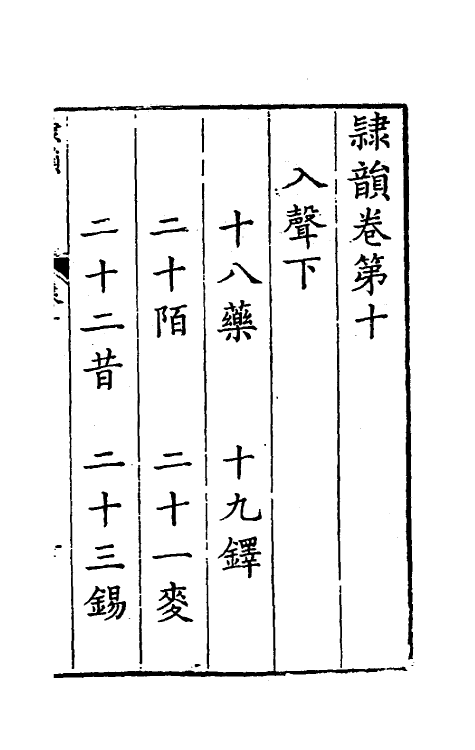 隷韻卷第十
入聲下
十八藥　十九鐸
二十陌　二十一麥
二十二昔　二十三錫